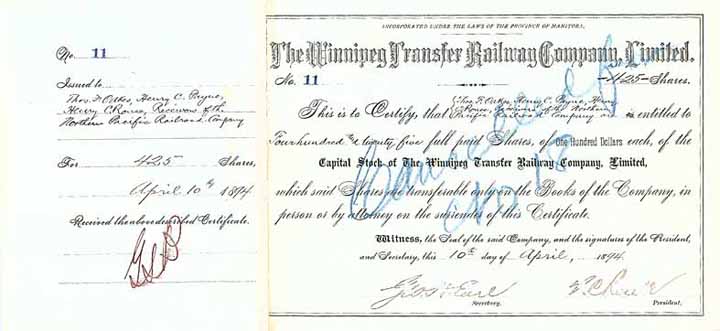 No. 11
Issued to
Thos. F. Oakes, Henry C. Payne,
Henry C. Rouse, Receivers of the
Northern Pacific Railroad Company
For 425 Shares,
April 10th 1894
Received the above described Certificate.
INCORPORATED UNDER THE LAWS OF THE PROVINCE OF MANITOBA.
The Winnipeg Transfer Railway Company, Limited.
No. 11 -425- Shares.
This is to Certify, that Thos. F. Oakes, Henry C. Payne, Henry
C. Rouse, Receivers of the Northern
Pacific Railroad Company is entitled to
Four hundred and twenty five full paid Shares, of One Hundred Dollars each, of the
Capital Stock of The Winnipeg Transfer Railway Company, Limited,
which said Shares are transferable only on the Books of the Company, in
person or by attorney on the surrender of this Certificate.
Witness, the Seal of the said Company, and the signatures of the President,
and Secretary, this 10th day of April, 1894.
Geo. H. Earl
Secretary.
President.
Cancelled